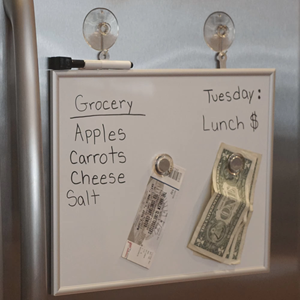 Grocery
Apples
Carrots
Cheese
Salt
Tuesday:
Lunch $